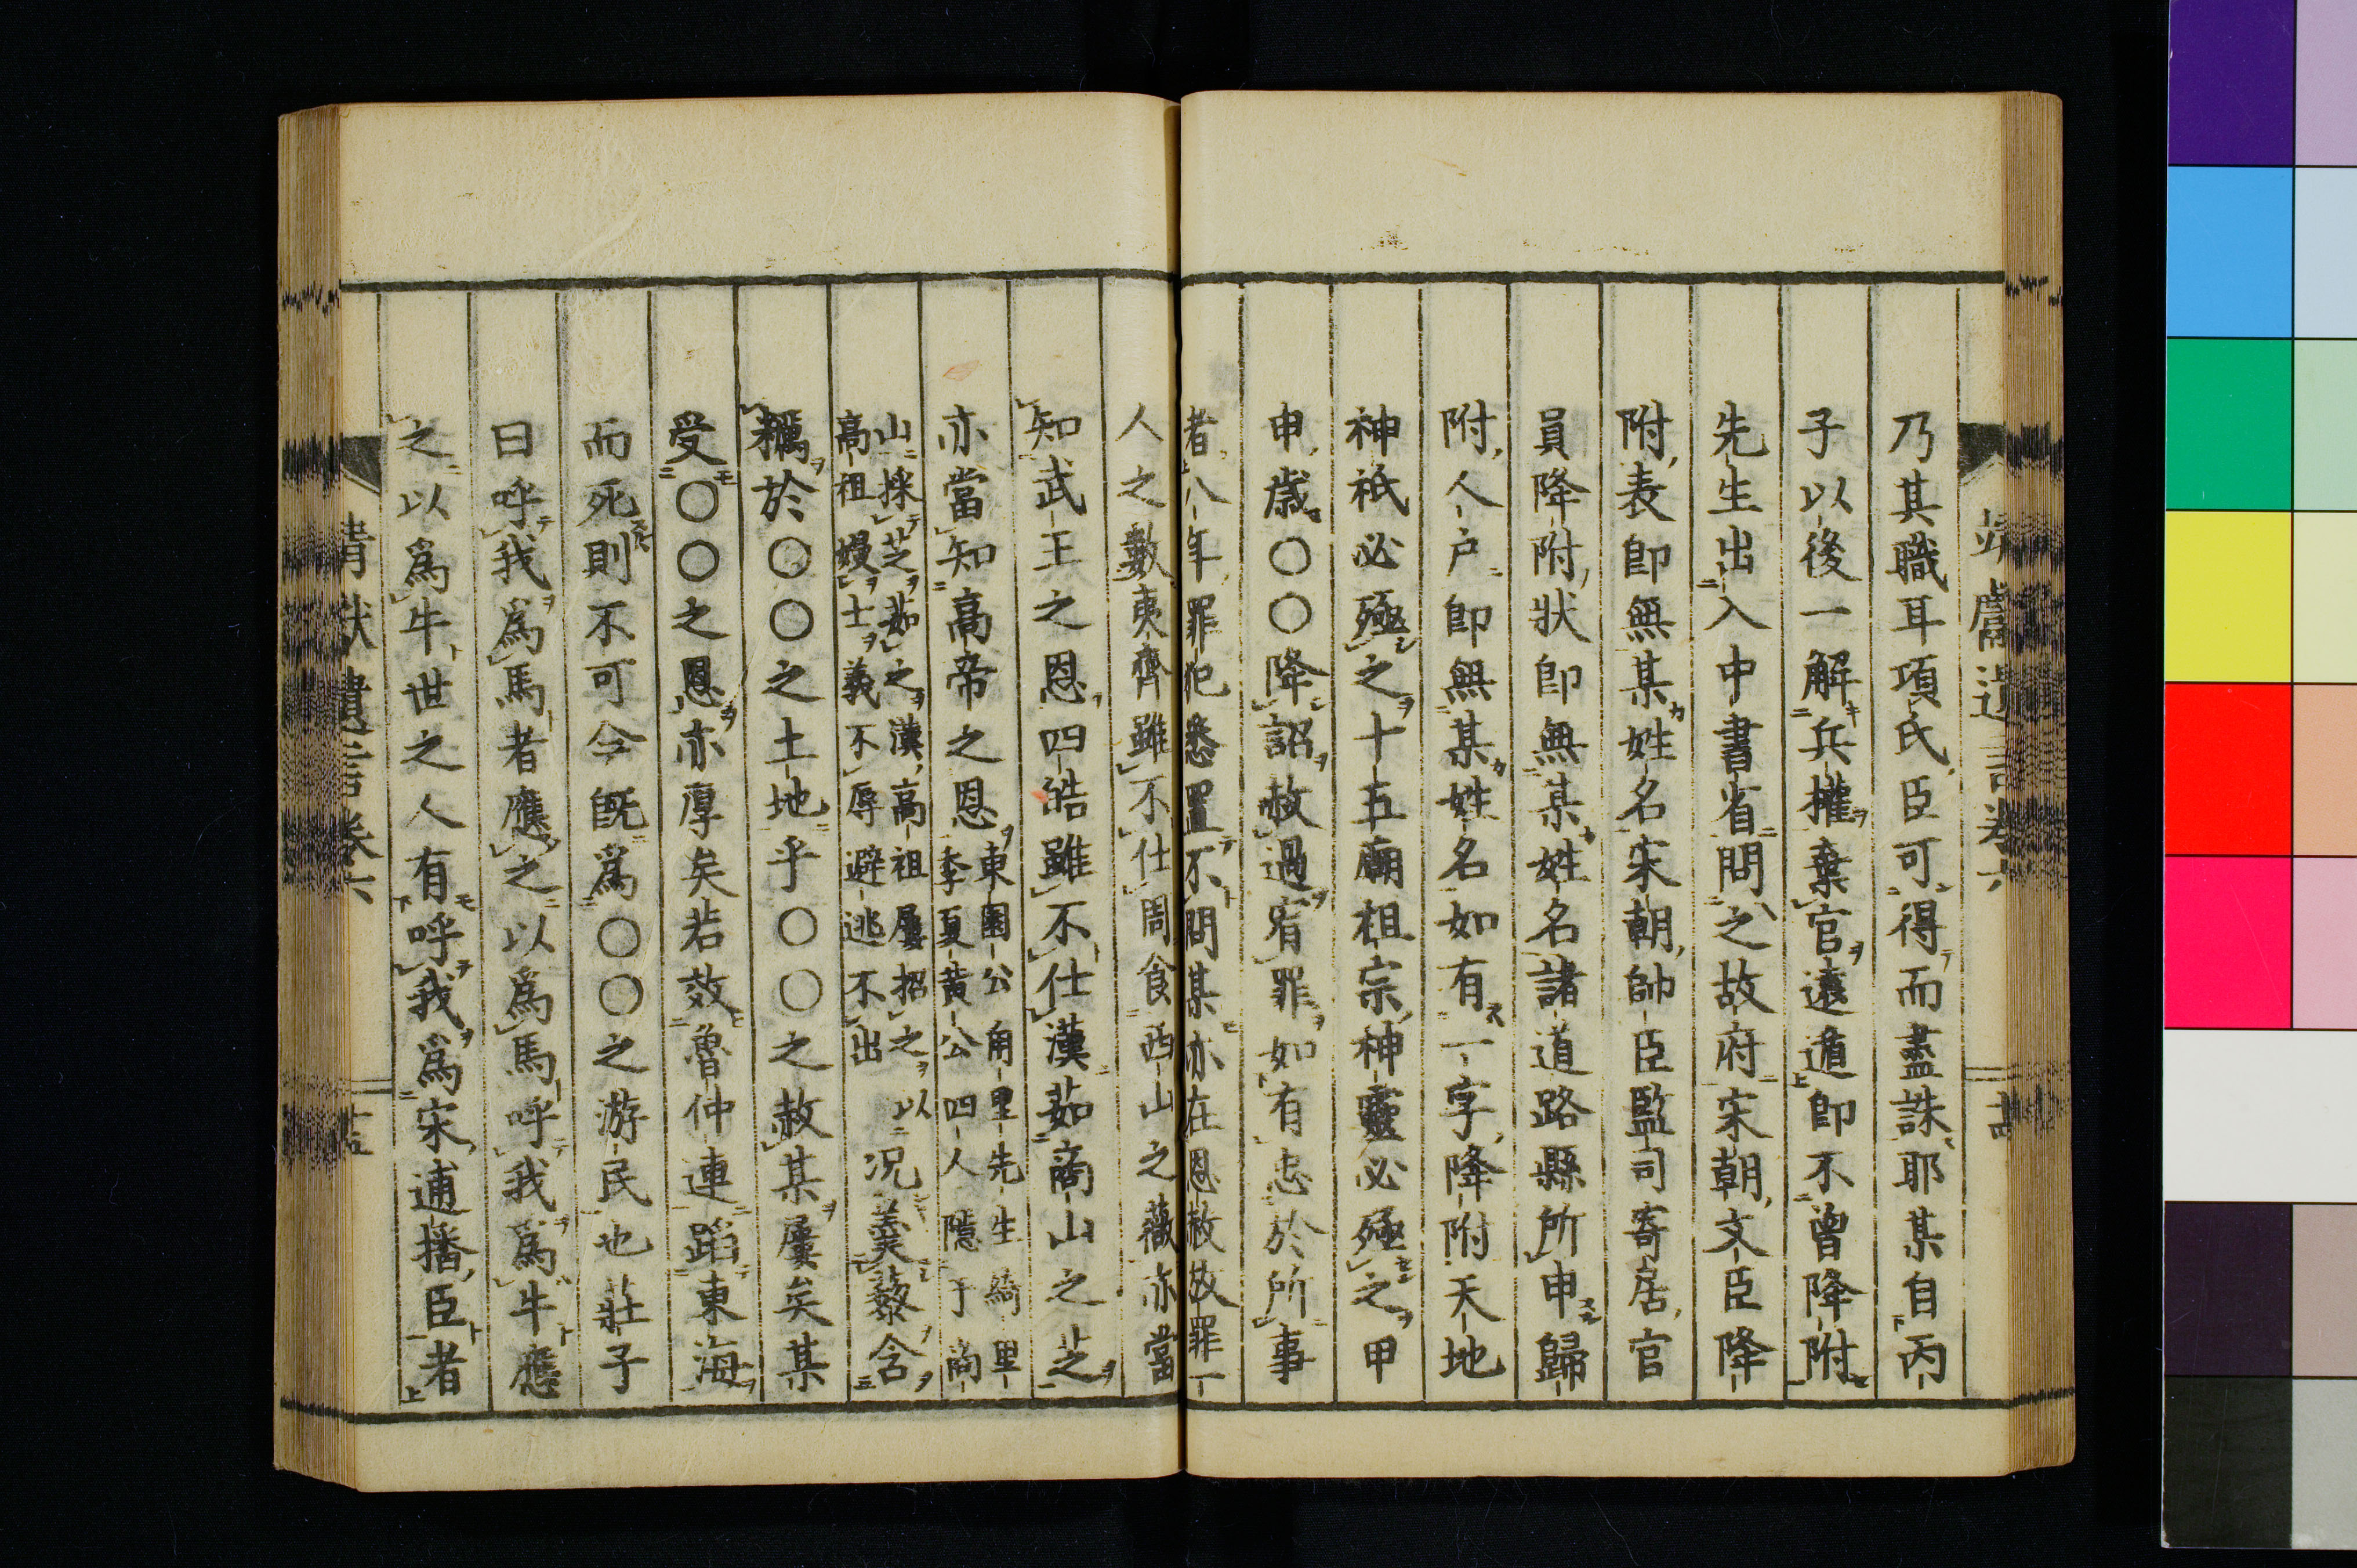 乃其職耳項氏臣可得而盡誅耶某自丙
子以後一解兵權棄官遠遁即不曾降附
先生出入中書省問之故府宋朝文臣降
附表即無某姓名宋朝帥臣監司寄居官
員降附狀即無某姓名諸道路縣所申歸
附人户即無某姓名如有一字降附天地
神祇必殛之十五廟祖宗神靈必殛之甲
申歳〇〇降詔赦過宥罪如有忠於所事
者八年罪犯悉置不問某亦在恩赦放罪一
人之數夷齊雖不仕周食西山之薇亦當
知武王之恩四皓雖不仕漢茹商山之芝
亦當知高帝之恩東園公角里先生綺里季夏黄公四人隱于商
山採芝茹之漢高祖屢招之以高祖嫚士義不辱避逃不出况羹藜含
糲於〇〇之土地乎〇〇之赦某屢矣某
受〇〇之恩亦厚矣若效魯仲連蹈東海
而死則不可今既爲〇〇之游民也莊子
曰呼我爲馬者應之以爲馬呼我爲牛應
之以爲牛世之人有呼我爲宋逋播臣者
靖獻遺言卷六